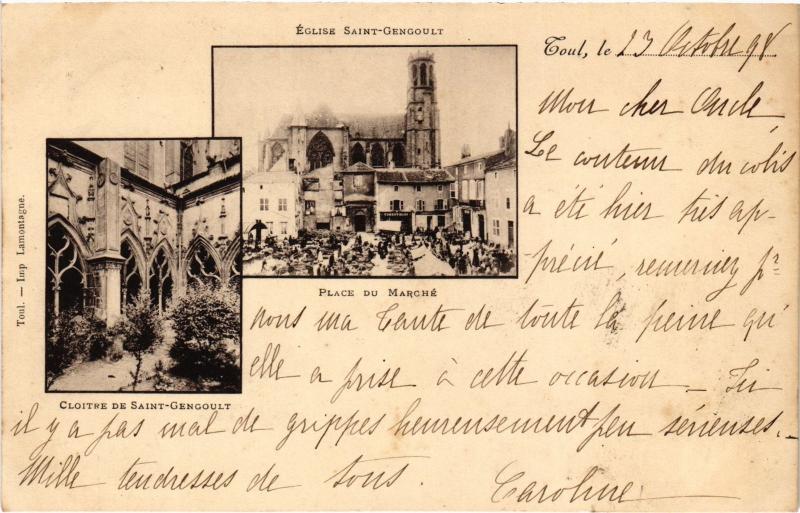 ÉGLISE SAINT-GENGOULT
Toul, le 23 Octobre 98
Mon cher Oncle,
Le contenu du colis
a été hier très ap-
précié, remerciez pr
nous ma Tante de toute la peine qu'
elle a prise à cette occasion – Ici
il y a pas mal de grippes heureusement peu sérieuses. –
Mille tendresses de tous.
Caroline
PLACE DU MARCHÉ
CLOITRE DE SAINT-GENGOULT
Toul. — Imp Lamontagne.